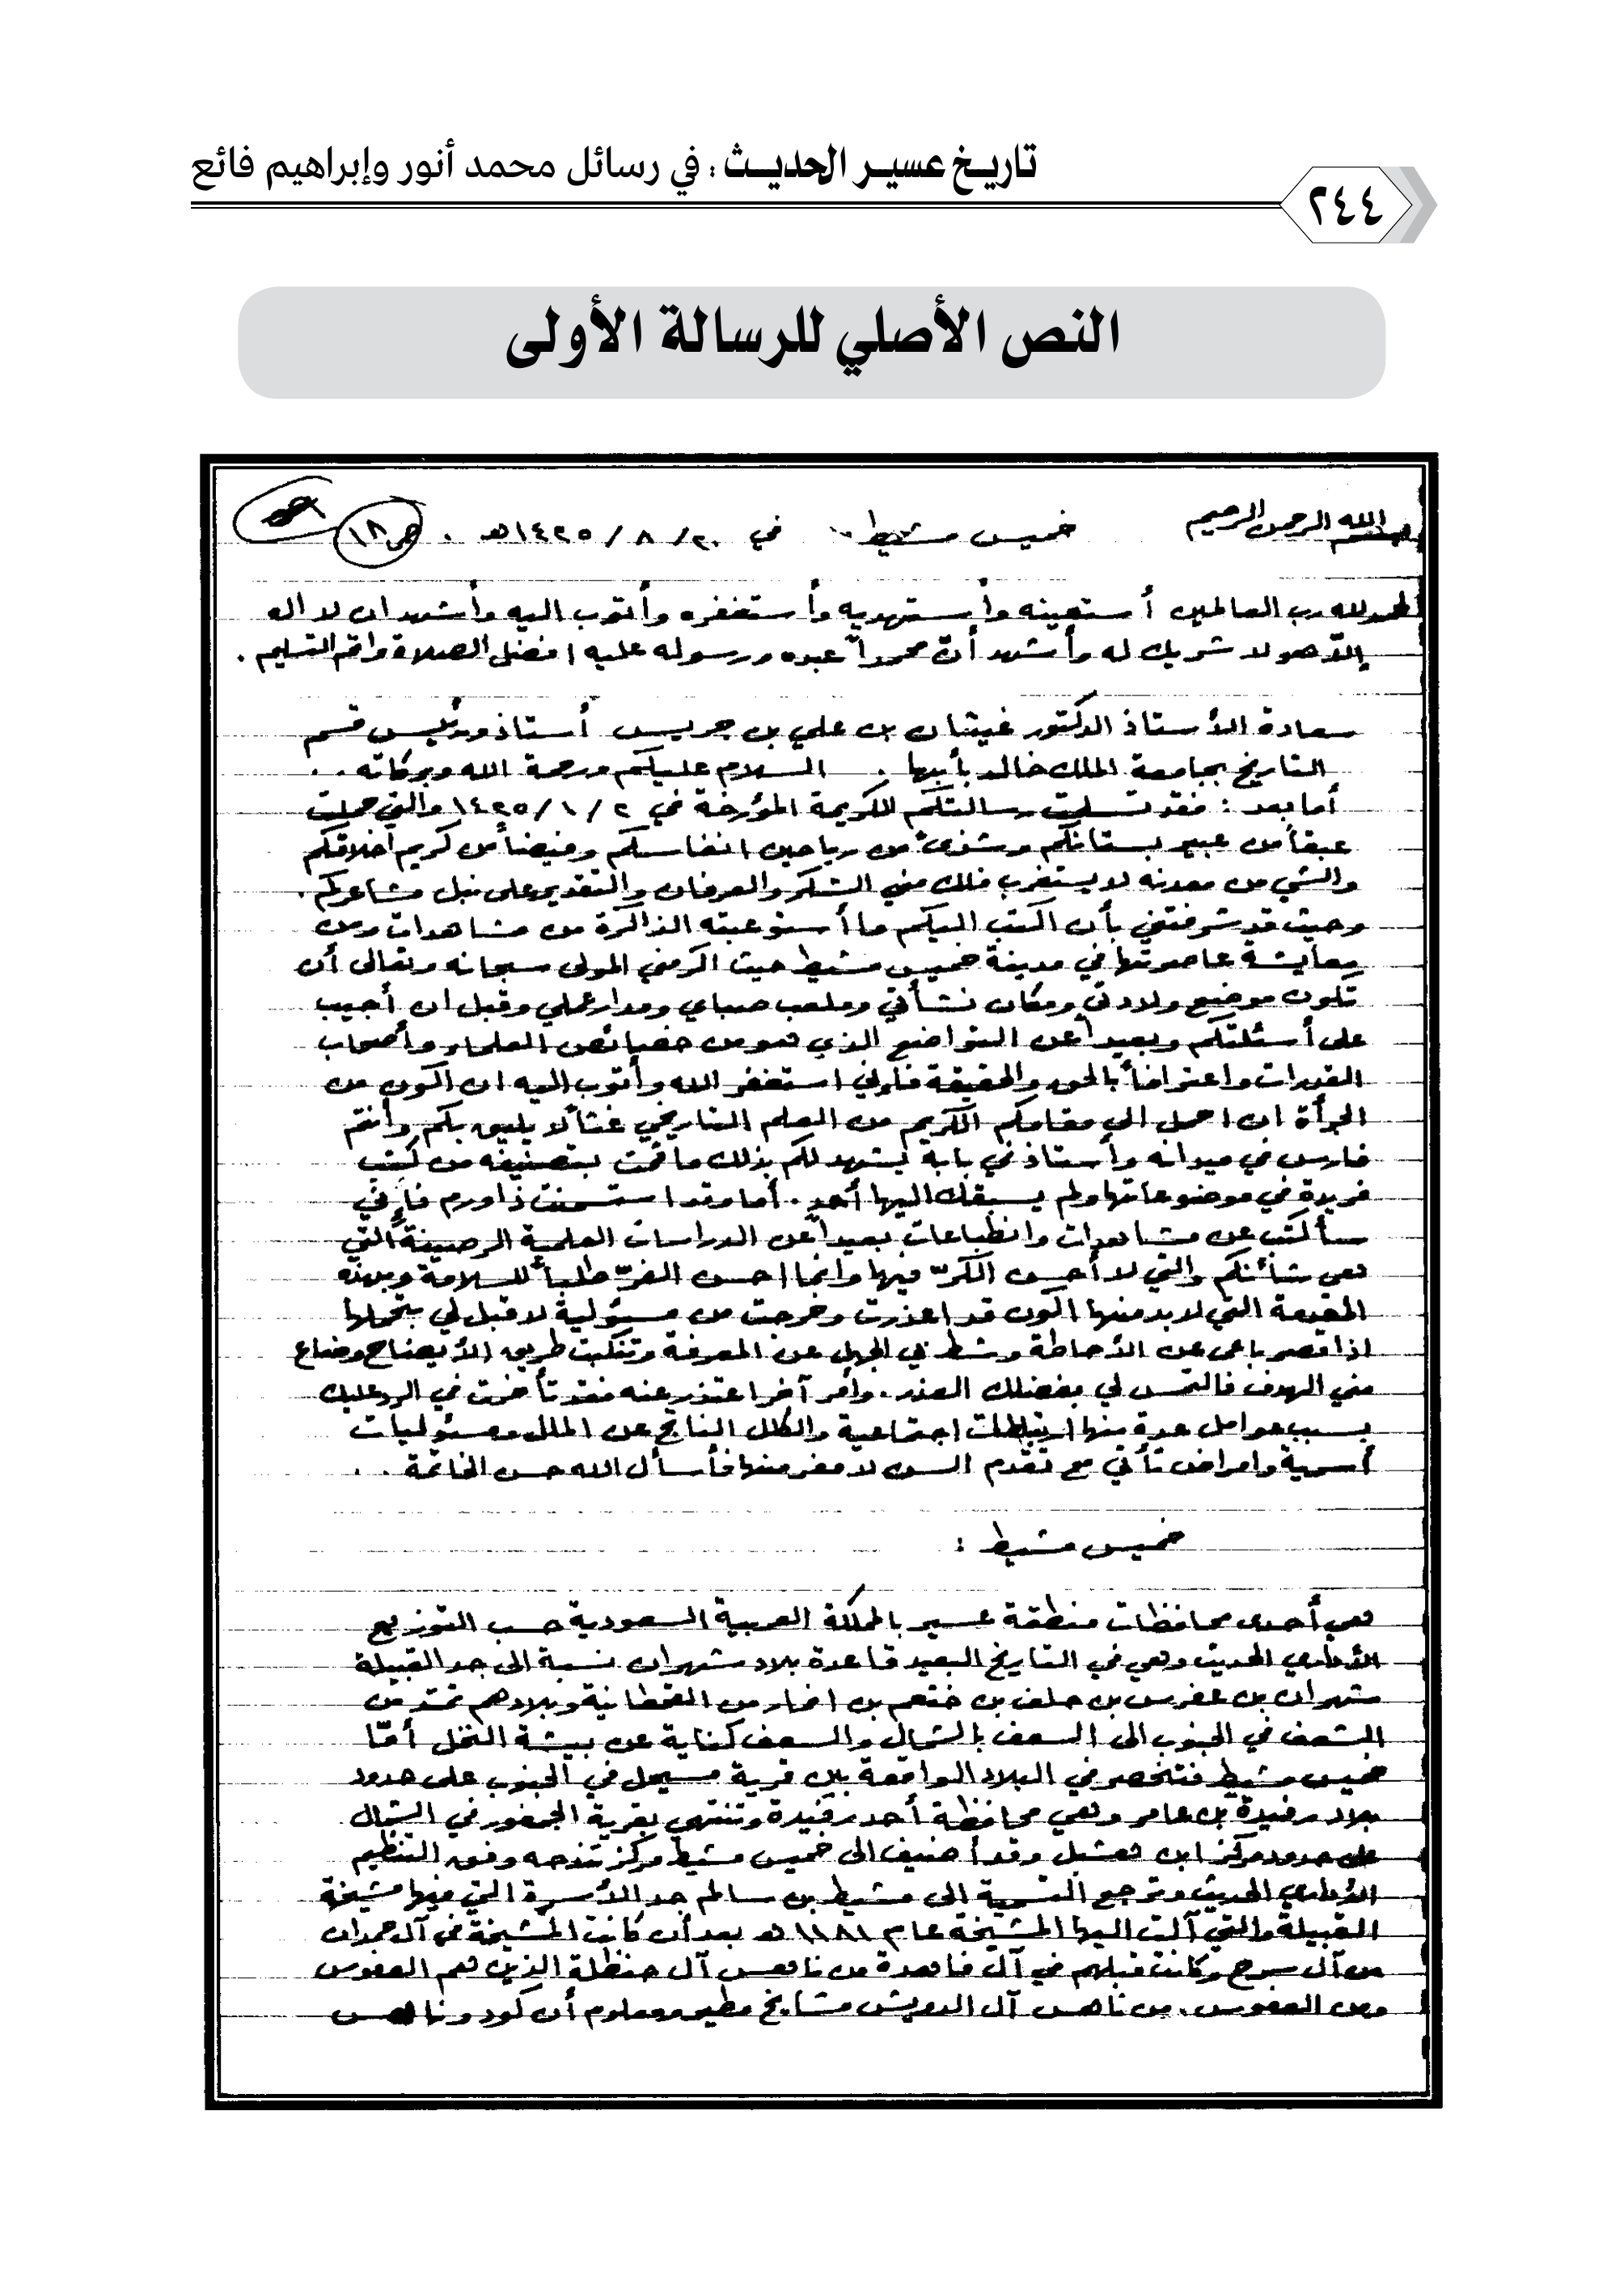 تاريخ عسير الحديث : في رسائل محمد أنور وإبراهيم فائع
٢٤٤
النص الأصلي للرسالة الأولى
بسم الله الرحمن الرحيم خميس مشيط في ٢٠/ ٨/ ١٤٢٥هـ . ص١٨
الحمد لله رب العالمين أستعينه وأستهديه وأستغفره وأتوب اليه وأشهد ان لا اله
إلاّ هو لا شريك له وأشهد أنّ محمداً عبده ورسوله عليه افضل الصلاة واتم التسليم .
سعادة الأستاذ الدكتور غيثان بن علي بن جريس أستاذ ورئيس قسم
التاريخ بجامعة الملك خالد بأبها . السلام عليكم ورحمة الله وبركاته . .
أما بعد : فقد تسلمت رسالتكم الكريمة المؤرخة في ٢ /١/ ١٤٢٥ والتي حملت
عبقاً من عبير بستانكم وشذىً من رياحين انفاسكم وفيضاً من كريم أخلاقكم
والشي من معدنه لا يستغرب فلك مني الشكر والعرفان والتقدير على نبل مشاعركم .
وحيث قد شرفتني بأن اكتب اليكم ما أستوعبته الذاكرة من مشاهدات ومن
معايشة عاصرتها في مدينة خميس مشيط حيث اكرمني المولى سبحانه وتعالى أن
تكون موضع ولادتي ومكان نشأتي وملعب صباي ومدار عملي وقبل ان أجيب
على أسئلتكم وبعيداً عن التواضع الذي هو من خصائص العلماء وأصحاب
القدرات واعترافاً بالحق والحقيقة فإني استغفر الله وأتوب اليه ان اكون من
الجرأة ان احمل الى مقامكم الكريم من العلم التاريخي غثاً لا يليق بكم وأنتم
فارس في ميدانه وأستاذ في بابه يشهد لكم بذلك ما قمت بتصنيفه من كتب
فريدة في موضوعاتها ولم يسبقك اليها أحد . أما وقد استسمنت ذا ورم فإني
سأكتب عن مشاهدات وانطباعات بعيداً عن الدراسات العلمية الرصينة التي
هي شأنكم والتي لا أحسن الكرّ فيها وانما احسن الفرّ طلباً للسلامة وبهذه
المقدمة التي لا بد منها اكون قد اعذرت وخرجت من مسئولية لا قبل لي بتحملها
اذا قصر باعي عن الأحاطة وشط بي الجهل عن المعرفة وتنكبت طريق الأيضاح وضاع
مني الهدف فالتمس لي بفضلك العذر . وأمر آخر اعتذر عنه فقد تأخرت في الرد عليك
بسبب عوامل عدة منها ارتباطات اجتماعية والكلل الناتج عن الملل ومسئوليات
أسرية وامراض تأتي مع تقدم السن لا مفر منها فأسأل الله حسن الخاتمة . .
خميس مشيط :
هي أحدى محافظات منطقة عسير بالمملكة العربية السعودية حسب التوزيع
الأداري الحديث وهي في التاريخ البعيد قاعدة بلاد شهران نسبة الى جد القبيلة
شهران بن عفرس بن حلف بن خثعم بن انمار من القحطانية وبلادهم تمتد من
الشعف في الجنوب الى السعف بالشمال والسعف كناية عن بيشة النخل أمّا
خميس مشيط فتنحصر في البلاد الواقعة بين قرية مسيحل في الجنوب على حدود
بلاد رفيدة بن عامر وهي محافظة أحد رفيدة وتنتهي بقرية الجمفور في الشمال
على حدود مركز ابن هشبل وقد أضيف الى خميس مشيط مركز تندحه وفق التنظيم
الأداري الحديث وترجع التسمية الى مشيط بن سالم جد الأسرة التي فيها مشيخة
القبيلة والتي آلت اليها المشيخة عام ١١٨١ هـ بعد أن كانت المشيخة في آل حمدان
من آل سرح وكانت قبلهم في آل فاهدة من ناهس آل حنظلة الذين هم العفوس
ومن العفوس . من ناهس آل الدويش مشايخ مطير ومعلوم أن كود وناهس